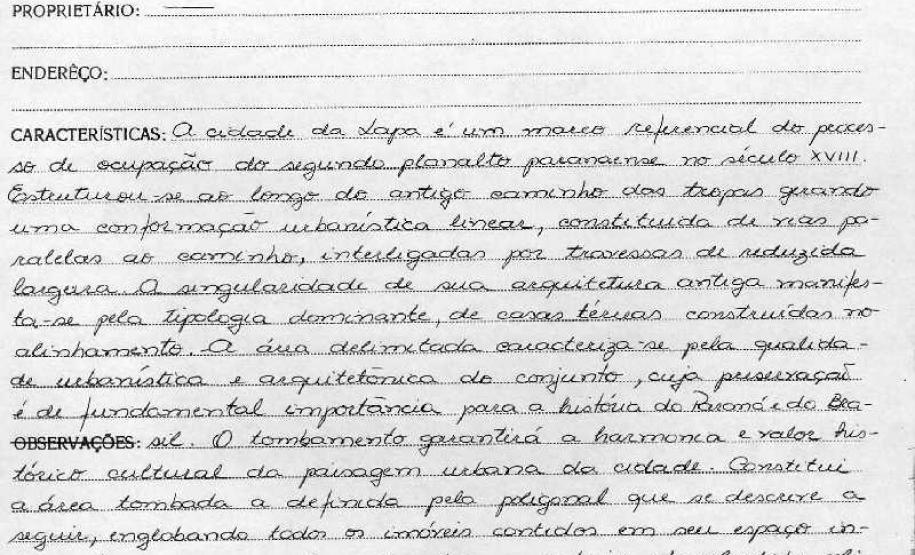 PROPRIETÁRIO:
ENDERÊÇO:
CARACTERÍSTICAS: A cidade da Lapa é um marco referencial do proces-
so de ocupação do segundo planalto paranaense no século XVIII.
Estruturou-se ao longo do antigo caminho das tropas gerando
uma conformação urbanística linear, constituida de ruas pa-
ralelas ao caminho, interligadas por travessas de reduzida
largura. A singularidade de sua arquitetura antiga manifes-
ta-se pela tipologia dominante, de casas térreas construídas no
alinhamento. A área delimitada caracteriza-se pela qualida-
de urbanística e arquitetônica do conjunto, cuja preservação
é de fundamental importância para a história do Paraná e do Bra-
OBSERVAÇÕES: sil. O tombamento garantirá a harmonia e valor his-
tórico cultural da paisagem urbana da cidade. Constitui
a área tombada a definida pela poligonal que se descreve a
seguir, englobando todos os imóveis contidos em seu espaço in-